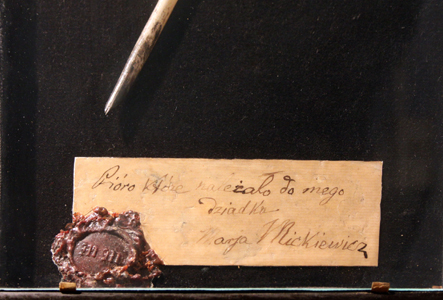 Pióro które należało do mego
dziadka
Marja Mickiewicz